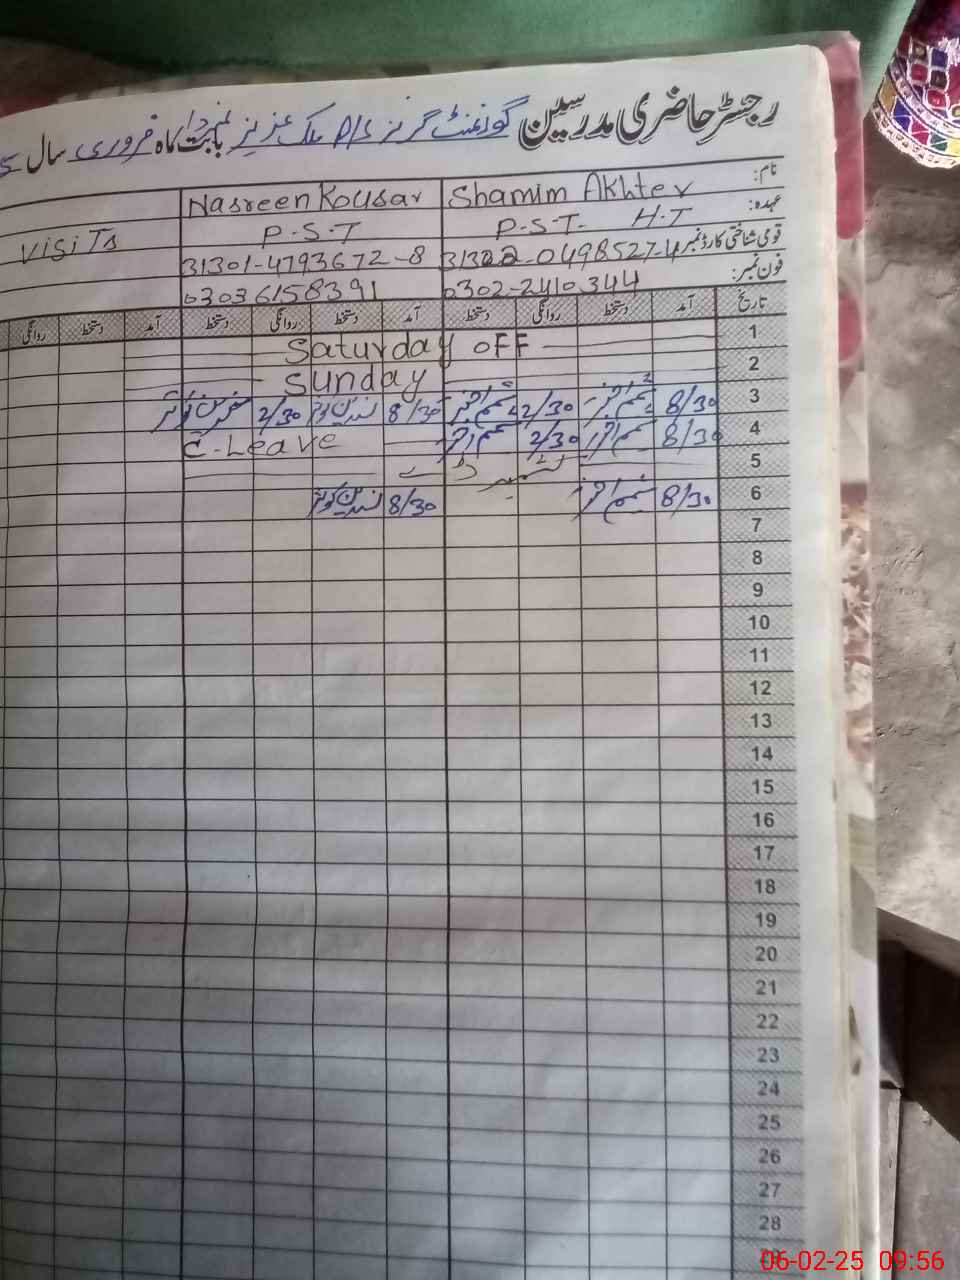 رجسٹر حاضری مدرسین گورنمنٹ گرلز P/S ملک عزیز نمبردار بابت ماہ فروری سال
نام: Shamim Akhter Nasreen Kousar
عہدہ: P.S.T. H.T P.S.T Visits
قومی شناختی کارڈ نمبر 31302-0498527-4 31301-4793672-8
فون نمبر: 0302-2410344 03036158391
تاریخ آمد دستخط روانگی دستخط آمد دستخط روانگی دستخط آمد دستخط روانگی
1 Saturday OFF
2 Sunday
3 8/30 شمیم اختر 2/30 شمیم اختر 8/30 نسرین کوثر 2/30 نسرین کوثر
4 8/30 شمیم اختر 2/30 شمیم اختر C-Leave
5 کشمیر ڈے
6 8/30 شمیم اختر 8/30 نسرین کوثر
7
8
9
10
11
12
13
14
15
16
17
18
19
20
21
22
23
24
25
26
27
28
06-02-25 09:56